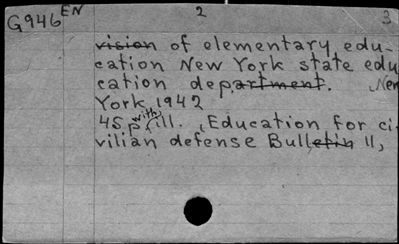 G946 EN 2 3
vision of elementary edu-
cation New York state edu
cation department. New
York, 1942
45 p. with ill. (Education for ci-
vilian defense Bulletin 11,